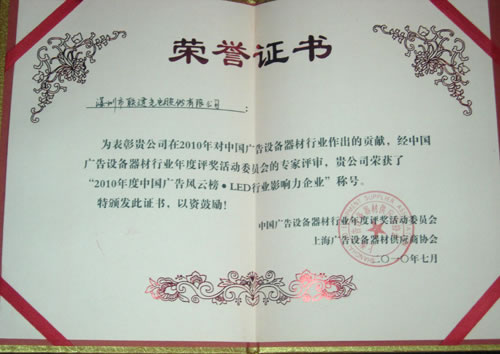 荣誉证书
深圳市联建光电股份有限公司：
为表彰贵公司在2010年对中国广告设备器材行业作出的贡献，经中国
广告设备器材行业年度评奖活动委员会的专家评审，贵公司荣获了
“2010年度中国广告风云榜•LED行业影响力企业”称号。
特颁发此证书，以资鼓励！
中国广告设备器材行业年度评奖活动委员会
上海广告设备器材供应商协会
二〇一〇年七月